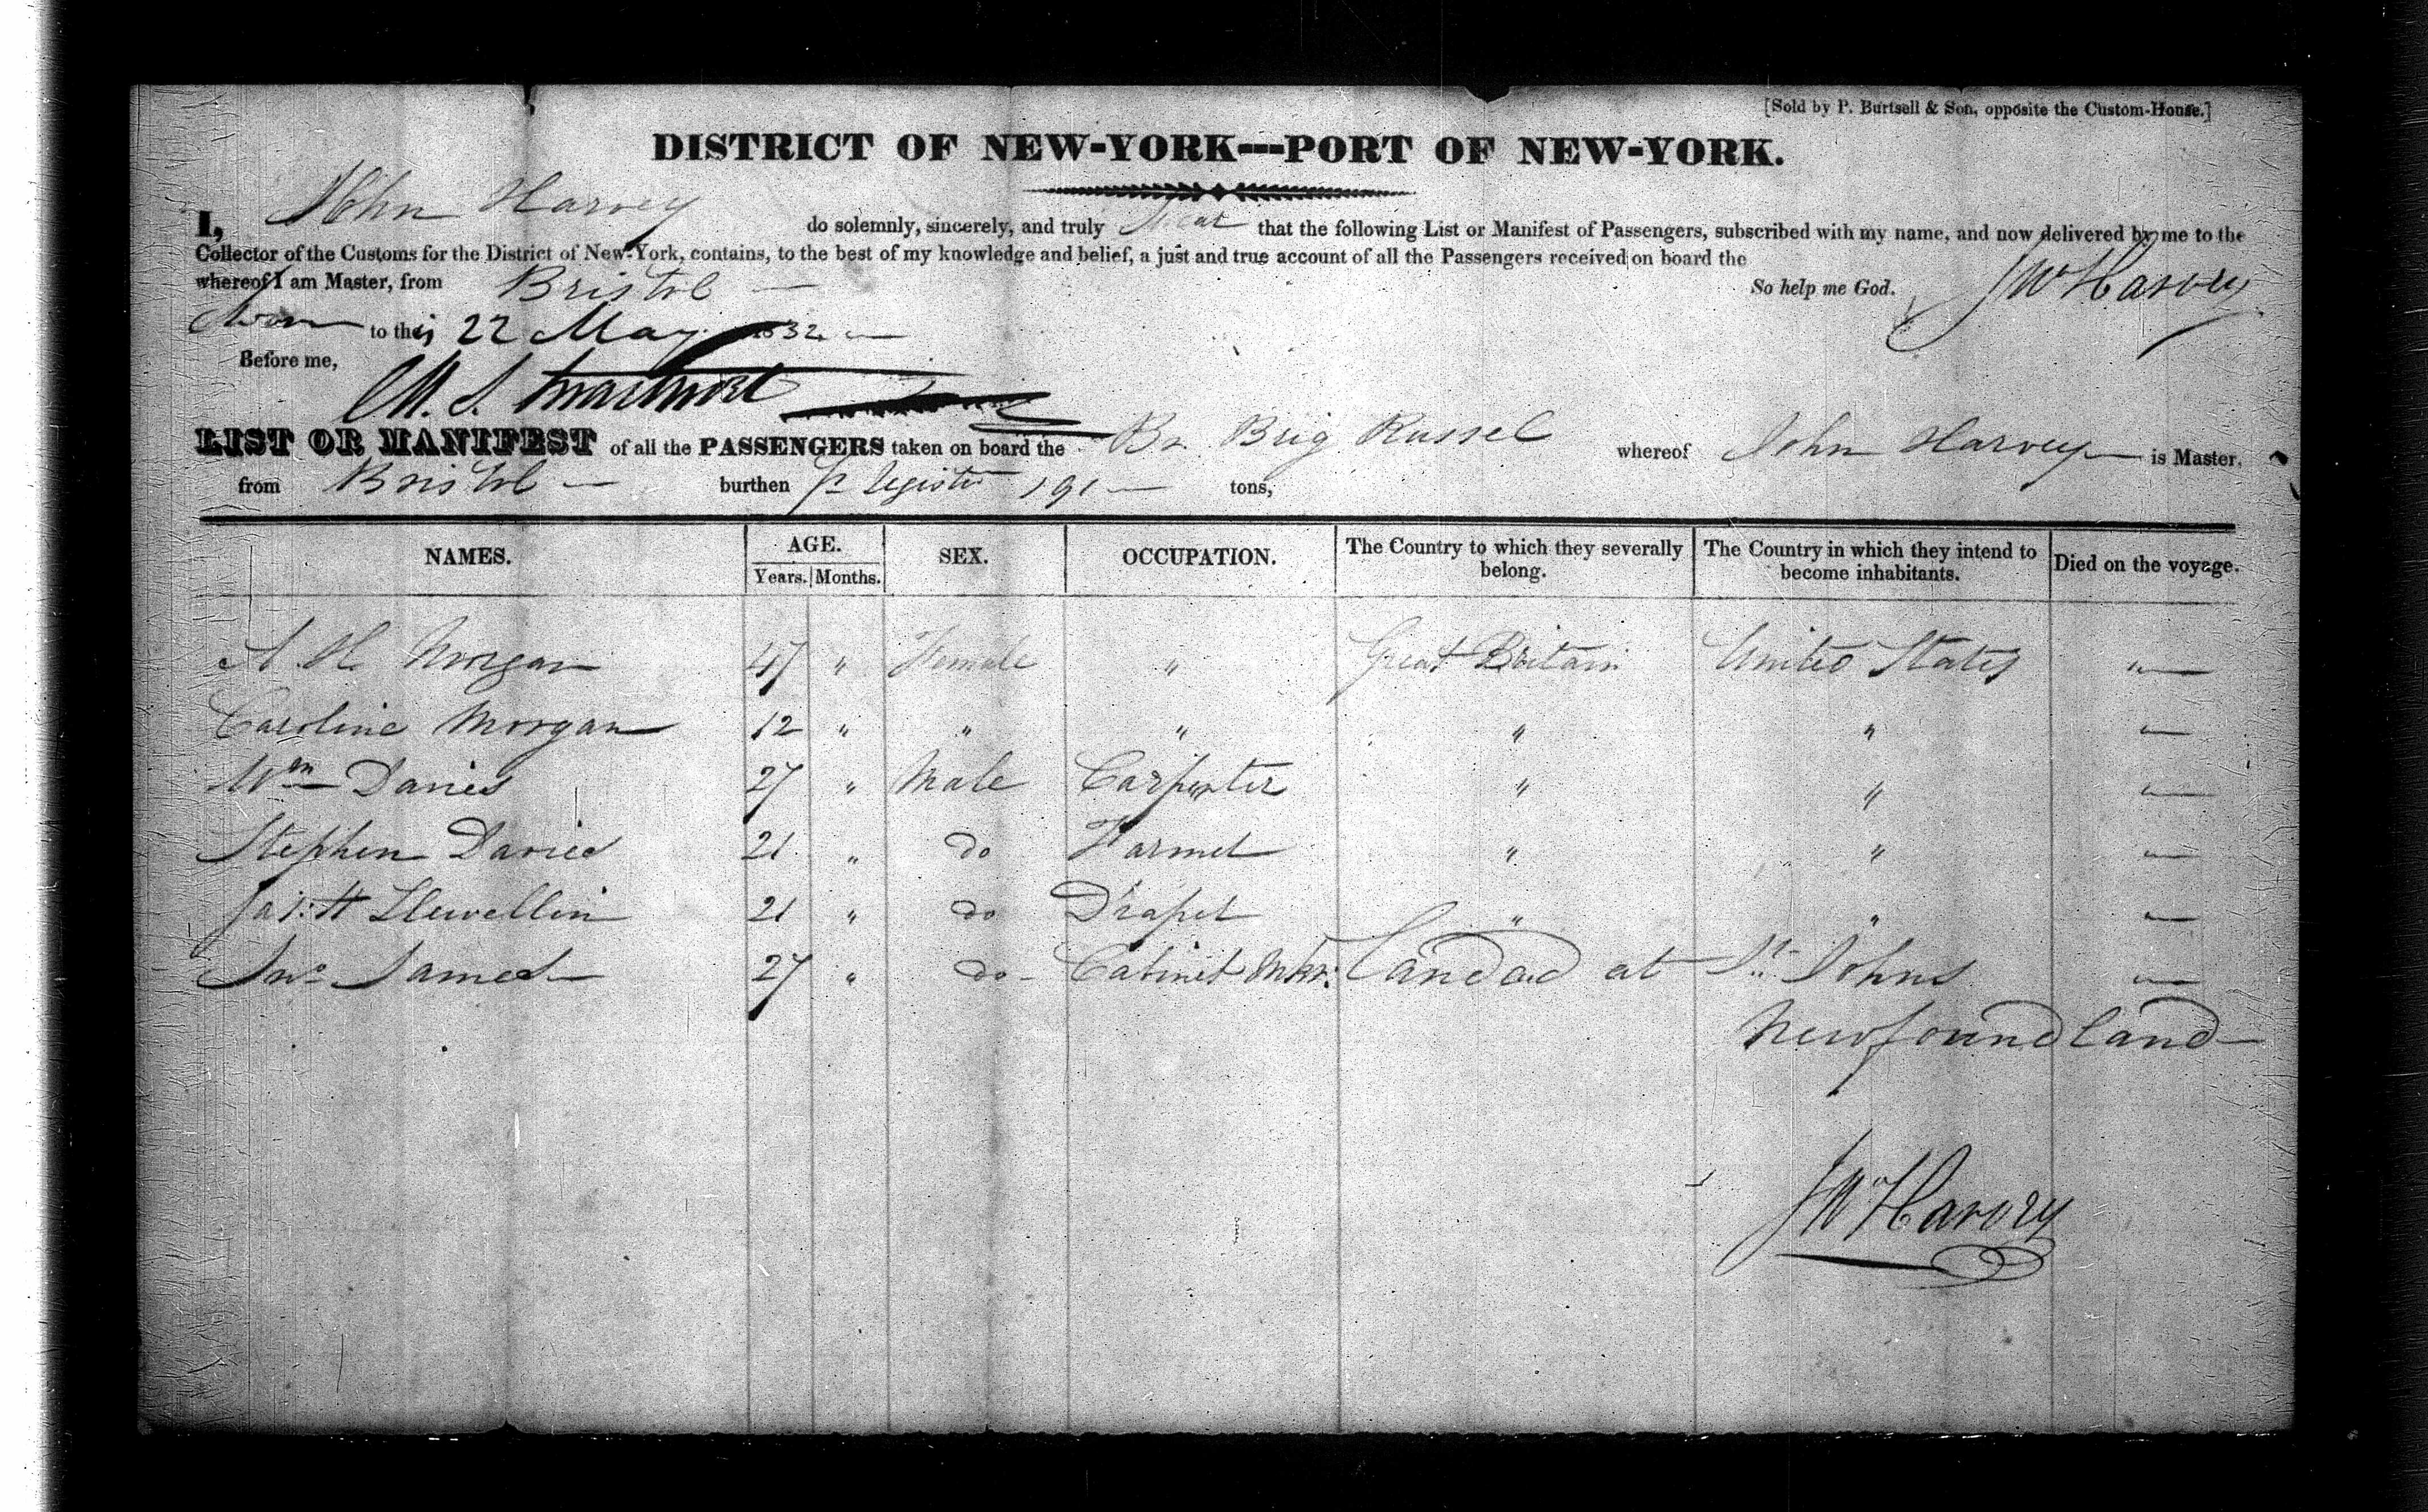 [Sold by P. Burtsell & Son, opposite the Custom-House.]
DISTRICT OF NEW-YORK---PORT OF NEW-YORK.
I, John Harvey do solemnly, sincerely, and truly Swear that the following List or Manifest of Passengers, subscribed with my name, and now delivered by me to the
Collector of the Customs for the District of New-York, contains, to the best of my knowledge and belief, a just and true account of all the Passengers received on board the
whereof I am Master, from Bristol So help me God. JW Harvey
Sworn to this 22 May 1832
Before me,
LIST OR MANIFEST of all the PASSENGERS taken on board the Br. Brig Russel whereof John Harvey is Master,
from Bristol burthen pr Register 191 tons,
NAMES. AGE. SEX. OCCUPATION. The Country to which they severally belong. The Country in which they intend to become inhabitants. Died on the voyage.
Years. Months.
A H Morgan 47 " Female " Great Britain United States "
Caroline Morgan 12 " " " " " "
Wm Davies 27 " Male Carpenter " " "
Stephen Davies 21 " do Farmer " " "
Jas: H Llewellin 21 " do Draper " " "
Jno James 27 " do Cabinet Mkr: Landed at St. Johns "
Newfoundland
JW Harvey